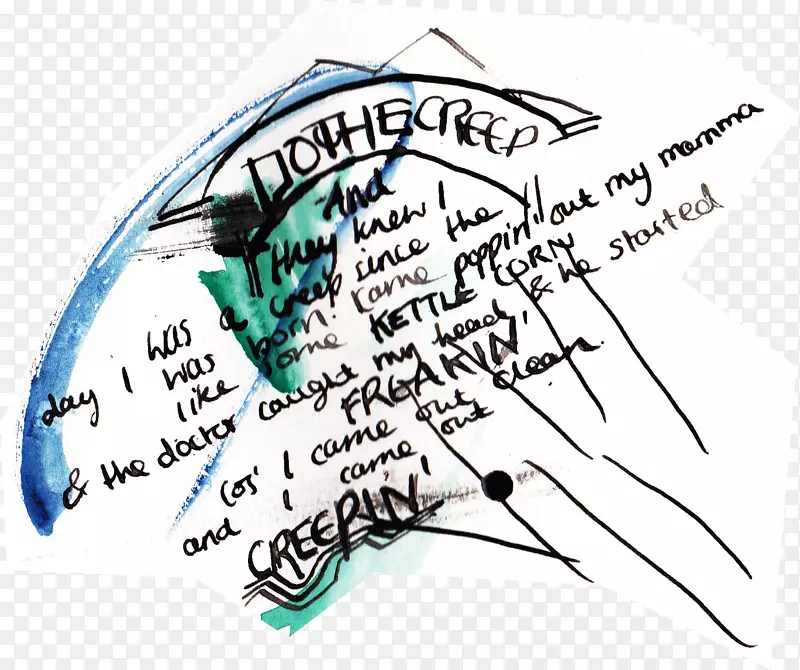 DO THE CREEP
And
they knew I
was a creep since the
day I was born. Came poppin' out my momma
like some KETTLE CORN
& the doctor caught my head, & he started
FREAKIN'
cos' I came out clean
and I came out
CREEPIN'